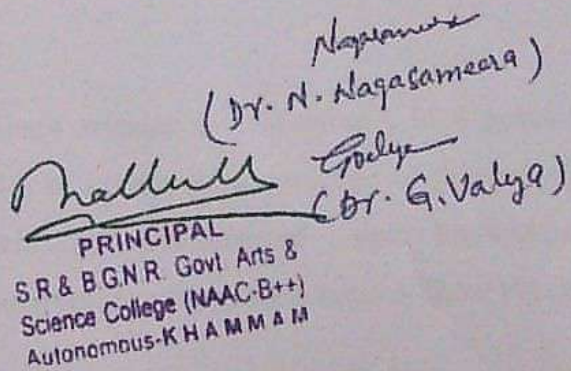 (Dr. N. Nagasameera)
(Dr. G. Valya)
PRINCIPAL
S R & B.G.N.R. Govt. Arts &
Science College (NAAC-B++)
Autonomous-K H A M M A M